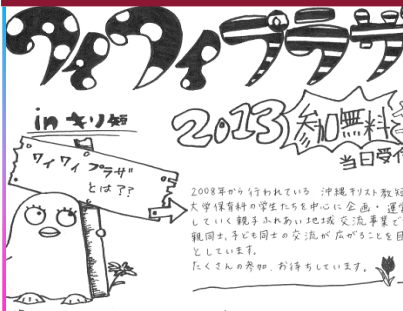 ワイワイプラザ
in キリ短
2013
参加無料
当日受付
ワイワイ プラザ
とは??
2008年から行われている 沖縄キリスト教短
大学保育科の学生たちを中心に企画・運営
していく親子ふれあい地域交流事業で
親同士、子ども同士の交流が広がることを目
としています。
たくさんの参加、お待ちしています。